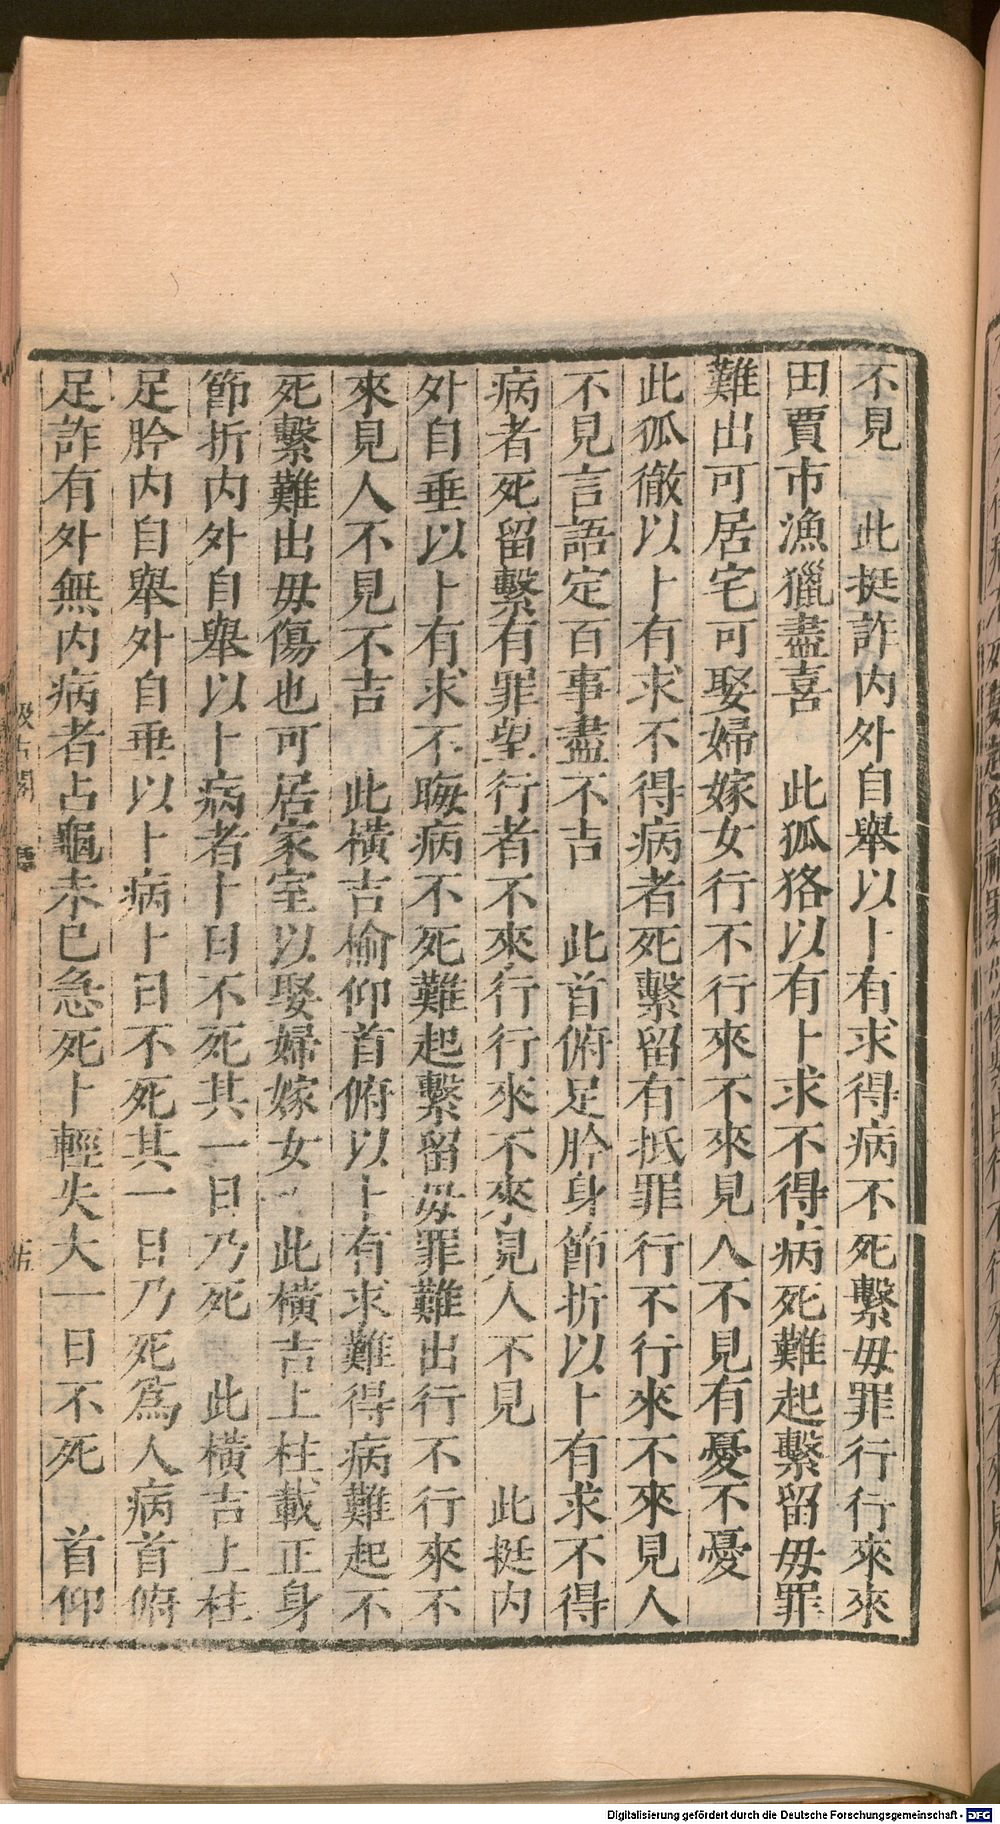 不見　此挺詐內外自舉以卜有求得病不死繫毋罪行行來來
田賈市漁獵盡喜　此狐狢以有卜求不得病死難起繫留毋罪
難出可居宅可娶婦嫁女行不行來不來見人不見有憂不憂
此狐徹以卜有求不得病者死繫留有抵罪行不行來不來見人
不見言語定百事盡不吉　此首俯足肣身節折以卜有求不得
病者死留繫有罪望行者不來行行來不來見人不見　此挺內
外自垂以卜有求不晦病不死難起繫留毋罪難出行不行來不
來見人不見不吉　此橫吉榆仰首俯以卜有求難得病難起不
死繫難出毋傷也可居家室以娶婦嫁女　此橫吉上柱載正身
節折內外自舉以卜病者卜日不死其一日乃死　此橫吉上柱
足肣內自舉外自垂以卜病卜日不死其一日乃死爲人病首俯
足詐有外無內病者占龜未已急死卜輕失大一日不死　首仰
Digitalisierung gefördert durch die Deutsche Forschungsgemeinschaft - DFG